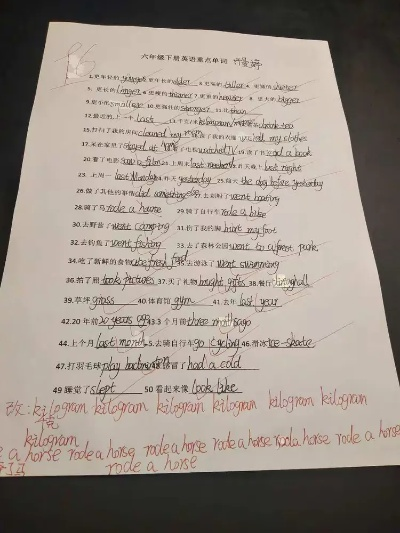 六年级下册英语重点单词
1.更年轻的younger 2.更年长的older 3.更高的taller 4.更矮的shorter
5.更长的longer 6.更瘦的thinner 7.更重的heavier 8.更大的bigger
9.更小的smaller 10.更强壮的stronger 11.比than
12.最近的,上一个last 13.千克/公斤kilogram drank tea
15.打扫了我的房间cleaned my room 洗了我的衣服washed my clothes
17.呆在家里了stayed at home 看电视watched TV 19.读了书read a book
20.看了电影saw a film 21.上周末last weekend 昨天晚上last night
23.上周一last Monday 24.昨天yesterday 25.前天the day before yesterday
26.做了其他的事情did something 去划船了went boating
28.骑了马rode a hurse 29.骑了自行车rode a bike
30.去野营了went camping 31.伤了我的脚hurt my foot
32.去钓鱼了went fishing 33.去了森林公园went to a forest park
34.吃了新鲜的食物ate fresh food 35.去游泳了went swimming
36.拍了照took pictures 37.买了礼物bought gifts 38.餐厅dining hall
39.草坪grass 40.体育馆gym 41.去年last year
42.20年前20 years ago 43.3个月前three months ago
44.上个月last month 45.去骑自行车go cycling 46.滑冰ice-skate
47.打羽毛球play badminton 48.感冒了had a cold
49.睡觉了slept 50看起来像look like
改:kilogram kilogram kilogram kilogram kilogram kilogram
kilogram
a horse rode a horse rode a horse rode a horse rode a horse rode a horse
rode a horse